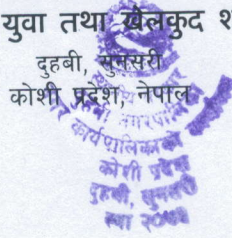 युवा तथा खेलकुद श
दुहबी, सुनसरी
कोशी प्रदेश, नेपाल
नगरपालि
कार्यपालिकाको
कोशी प्रदेश
दुहबी, सुनसरी